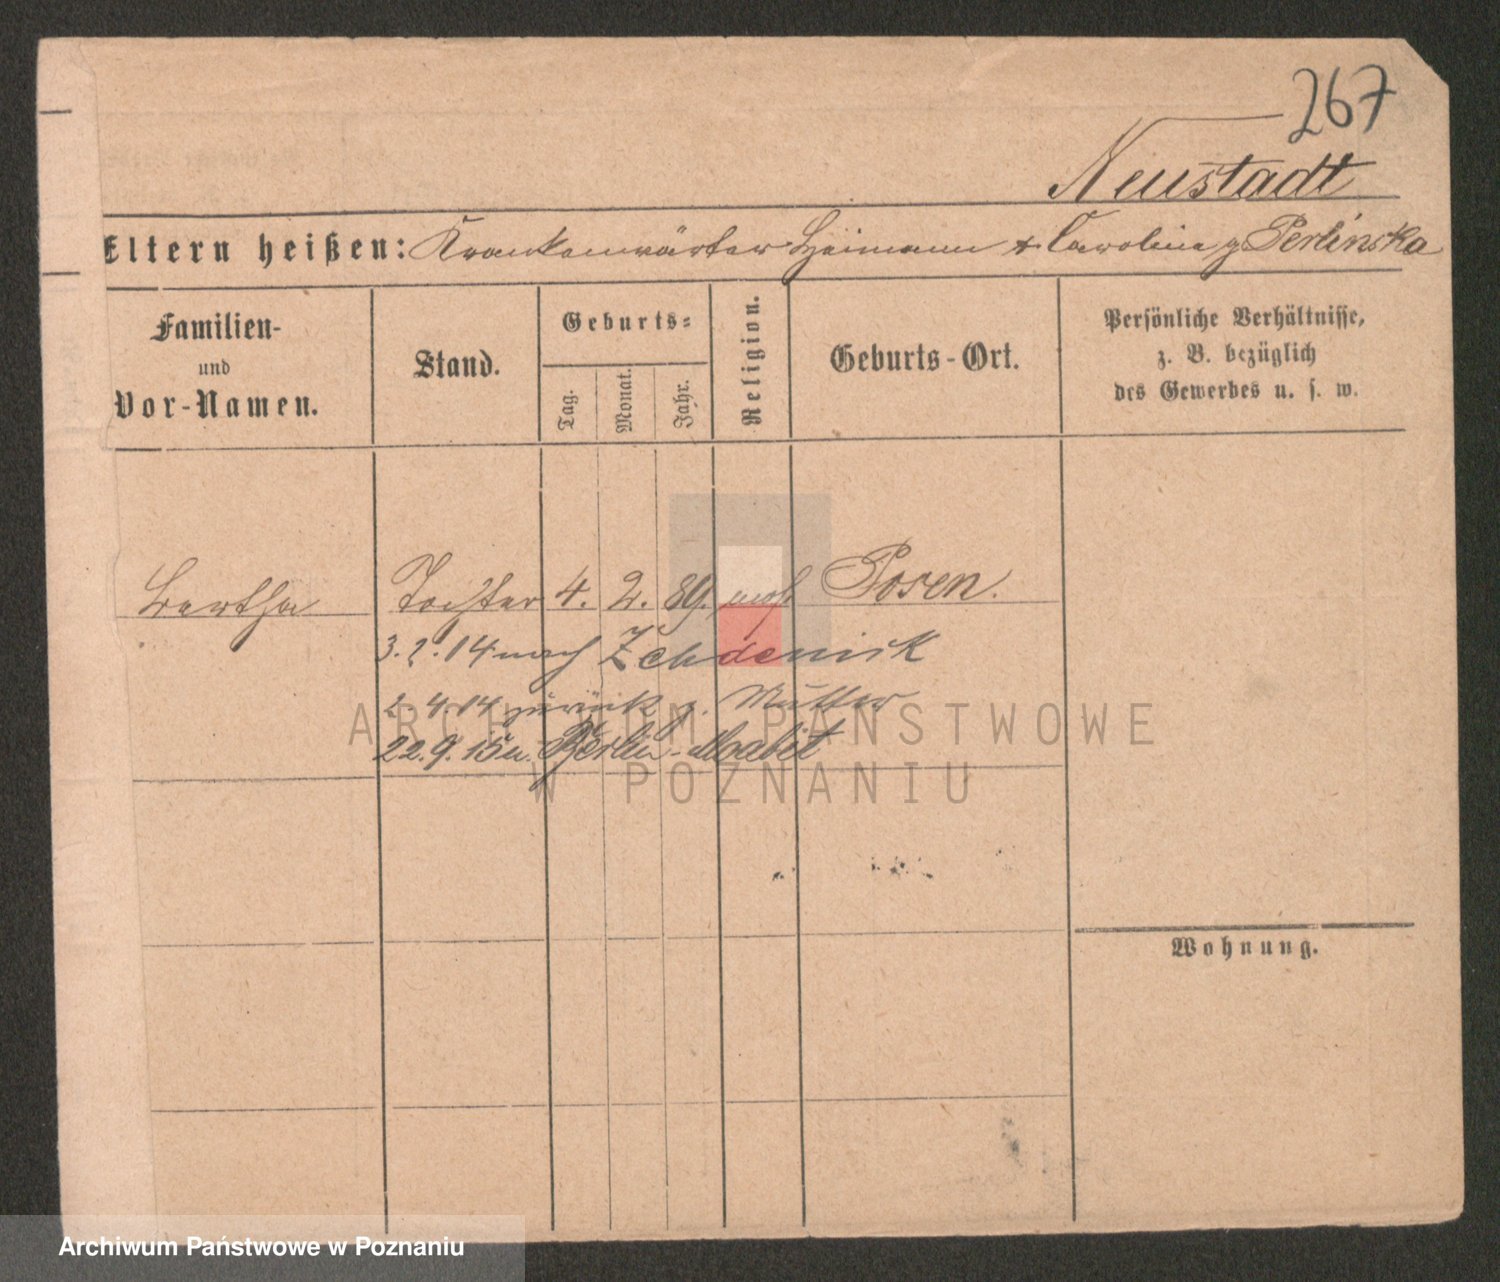 267
Neustadt
Eltern heißen: Krankenwärter Heimann & Caroline g. Perlinska
Familien-
und
Vor-Namen.
Stand.
Geburts-
Tag.
Monat.
Jahr.
Religion.
Geburts-Ort.
Persönliche Verhältnisse,
z. B. bezüglich
des Gewerbes u. s. w.
Bertha Tochter 4. 2. 89. mos. Posen.
3. 2. 14 nach Zehdenick
2. 4. 14 zurück z. Mutter
22. 9. 15 n. Berlin-Moabit
ARCHIWUM PAŃSTWOWE
W POZNANIU
Wohnung.
Archiwum Państwowe w Poznaniu